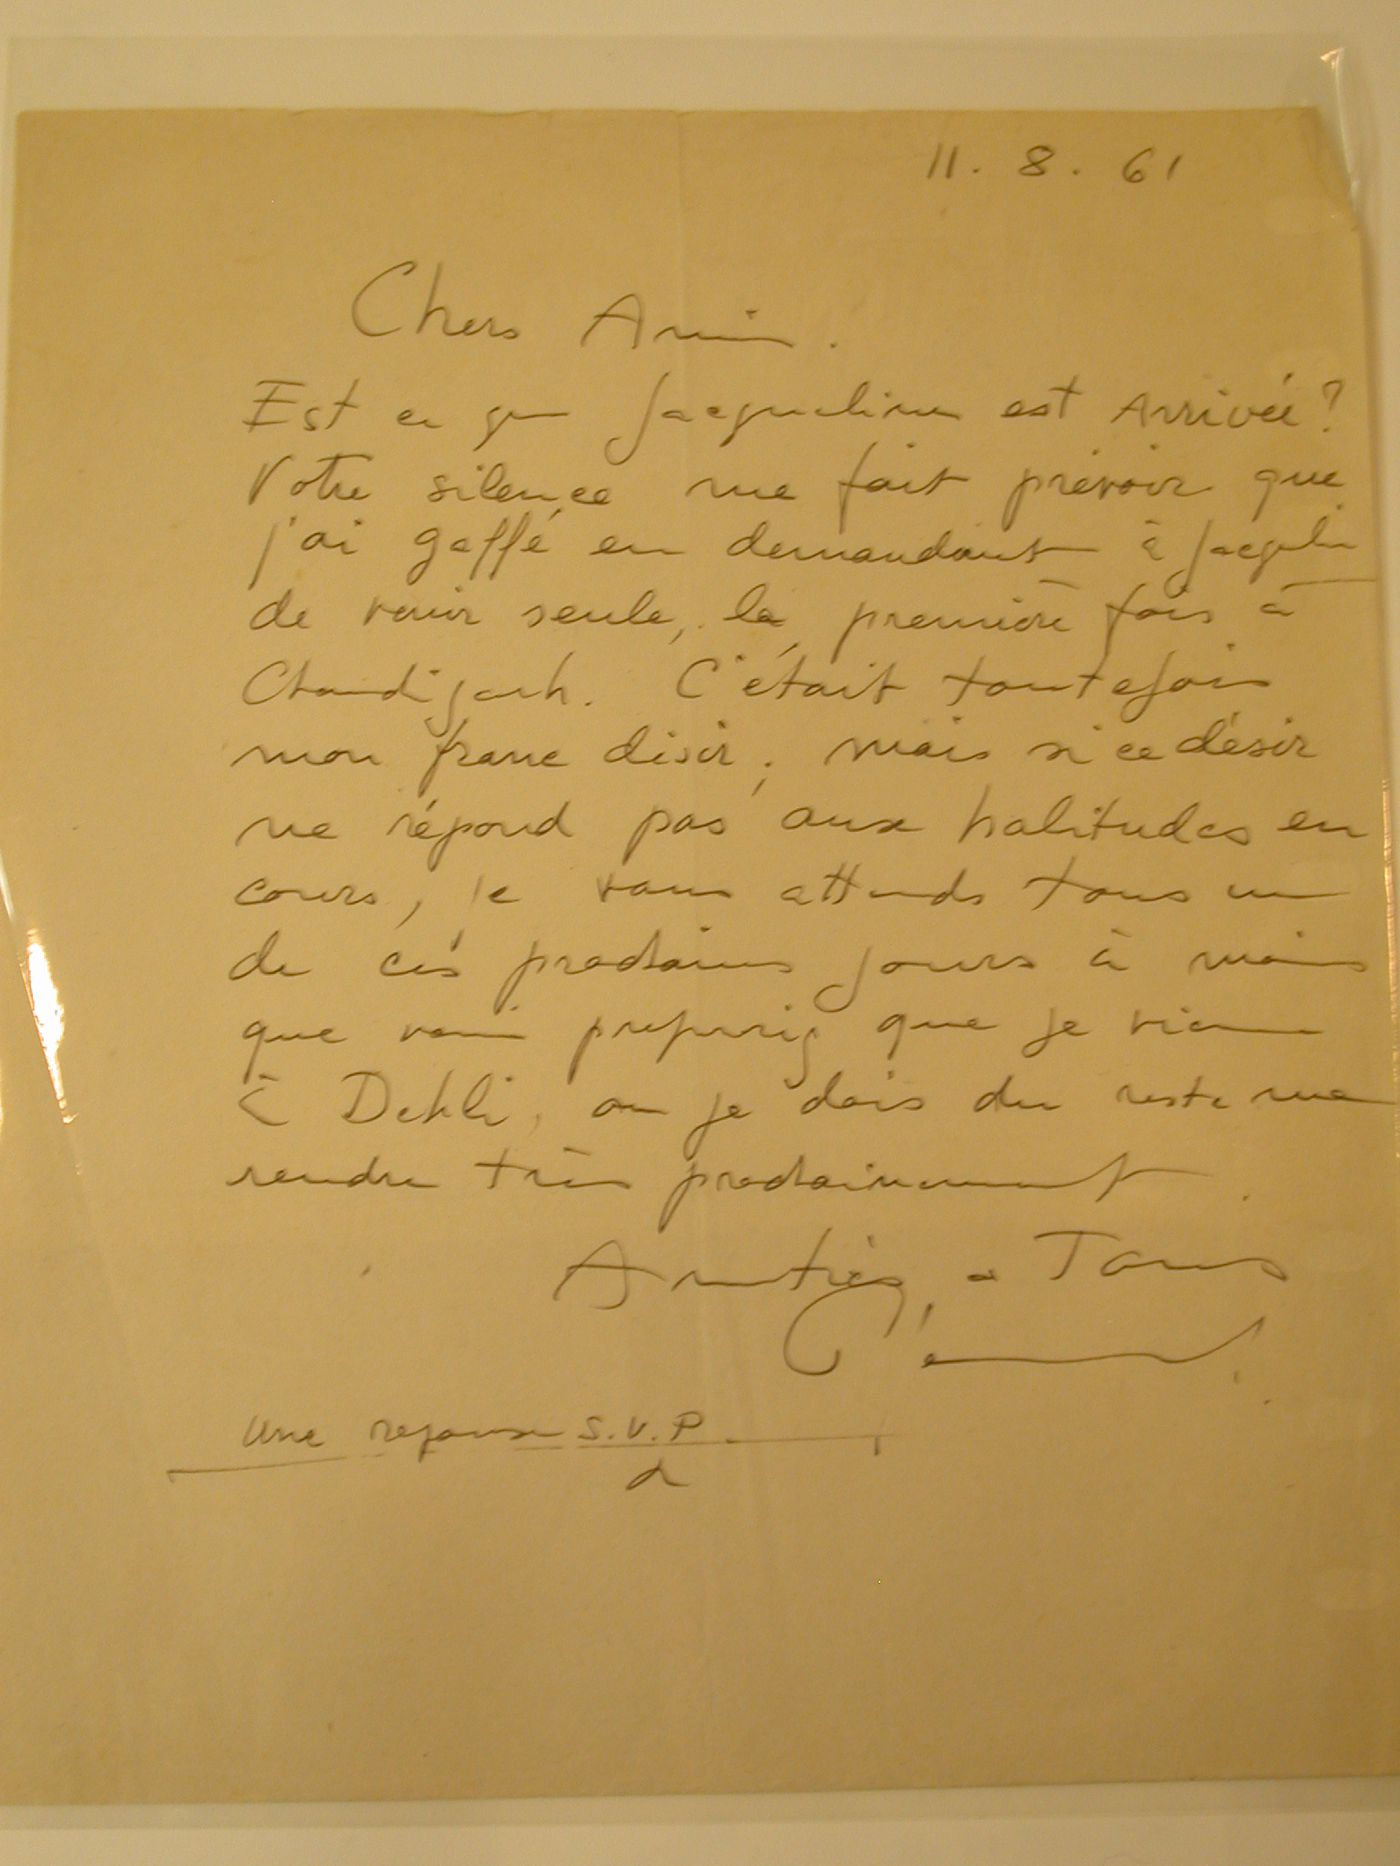 11. 8. 61
Chers Amis.
Est ce que Jacqueline est Arrivée?
Votre silence me fait prévoir que
j'ai gaffé en demandant à Jacqueline
de venir seule, la première fois à
Chandigarh. C'était toutefois
mon franc désir; mais si ce désir
ne répond pas aux habitudes en
cours, je vous attends tous un
de ces prochains jours à moins
que vous préfériez que je vienne
à Dehli, ou je dois du reste me
rendre très prochainement.
Amitiés, a Tous
Une reponse S.V.P.